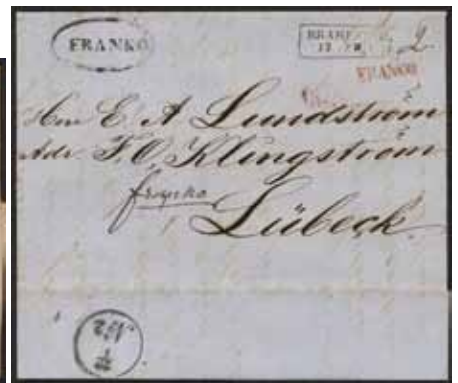 FRANKO
2.
FRANCO
Herr E. A. Lundström
Adr F. O. Klingström
franko
Lübeck.